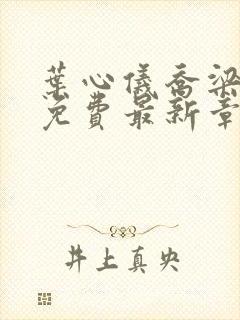 葉心儀喬梁
免費最新章
井上真央